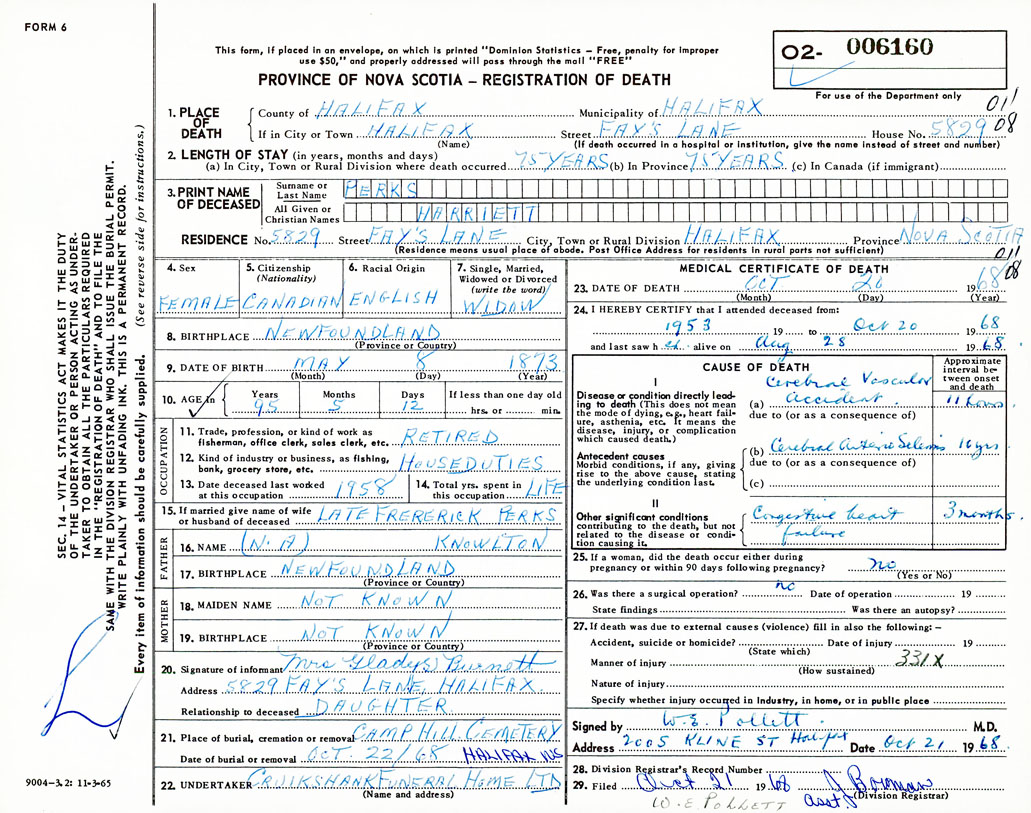 FORM 6
This form, if placed in an envelope, on which is printed "Dominion Statistics – Free, penalty for improper
use $50," and properly addressed will pass through the mail "FREE"
PROVINCE OF NOVA SCOTIA – REGISTRATION OF DEATH
02- 006160
For use of the Department only
011
08
1. PLACE OF DEATH
County of HALIFAX Municipality of HALIFAX
If in City or Town HALIFAX Street FAY'S LANE House No. 5829
(Name) (If death occurred in a hospital or institution, give the name instead of street and number)
2. LENGTH OF STAY (in years, months and days)
(a) In City, Town or Rural Division where death occurred 75 YEARS (b) In Province 75 YEARS. (c) In Canada (if immigrant)
3. PRINT NAME OF DECEASED
Surname or Last Name PERKS
All Given or Christian Names HARRIETT
RESIDENCE No. 5829 Street FAY'S LANE City, Town or Rural Division HALIFAX Province NOVA SCOTIA
(Residence means usual place of abode. Post Office Address for residents in rural parts not sufficient)
011
08
4. Sex
FEMALE
5. Citizenship
(Nationality)
CANADIAN
6. Racial Origin
ENGLISH
7. Single, Married,
Widowed or Divorced
(write the word)
WIDOW
8. BIRTHPLACE NEWFOUNDLAND
(Province or Country)
9. DATE OF BIRTH MAY 8 1873
(Month) (Day) (Year)
10. AGE in
Years Months Days If less than one day old
95 5 12 hrs. or min.
OCCUPATION
11. Trade, profession, or kind of work as
fisherman, office clerk, sales clerk, etc. RETIRED
12. Kind of industry or business, as fishing,
bank, grocery store, etc. HOUSEDUTIES
13. Date deceased last worked
at this occupation 1958
14. Total yrs. spent in
this occupation LIFE
15. If married give name of wife
or husband of deceased LATE FRERERICK PERKS
FATHER
16. NAME (N. A) KNOWLTON
17. BIRTHPLACE NEWFOUNDLAND
(Province or Country)
MOTHER
18. MAIDEN NAME NOT KNOWN
19. BIRTHPLACE NOT KNOWN
(Province or Country)
20. Signature of informant Mrs Gladys Burnett
Address 5829 FAY'S LANE, HALIFAX.
Relationship to deceased DAUGHTER
21. Place of burial, cremation or removal CAMP HILL CEMETERY
Date of burial or removal OCT 22/68 HALIFAX NS
22. UNDERTAKER CRUIKSHANK FUNERAL HOME LTD
(Name and address)
MEDICAL CERTIFICATE OF DEATH
23. DATE OF DEATH OCT 20 1968
(Month) (Day) (Year)
24. I HEREBY CERTIFY that I attended deceased from:
1953 19 to Oct 20 1968
and last saw her alive on Aug 28 1968
CAUSE OF DEATH
Approximate interval between onset and death
I
Disease or condition directly leading to death (This does not mean the mode of dying, e.g., heart failure, asthenia, etc. It means the disease, injury, or complication which caused death.)
Cerebral Vascular
(a) accident 11 hours
due to (or as a consequence of)
Antecedent causes
Morbid conditions, if any, giving rise to the above cause, stating the underlying condition last.
(b) Cerebral 16 yrs
due to (or as a consequence of)
(c)
II
Other significant conditions contributing to the death, but not related to the disease or condition causing it.
Congestive heart 3 months
failure
25. If a woman, did the death occur either during
pregnancy or within 90 days following pregnancy? no
(Yes or No)
26. Was there a surgical operation? no Date of operation 19
State findings Was there an autopsy?
27. If death was due to external causes (violence) fill in also the following: –
Accident, suicide or homicide? Date of injury 19
(State which)
Manner of injury 331X
(How sustained)
Nature of injury
Specify whether injury occurred in Industry, in home, or in public place
Signed by W.E. Pollett M.D.
Address 2005 KLINE ST Halifax Date Oct 21 1968.
28. Division Registrar's Record Number
29. Filed Oct 21 1968
asst. (Division Registrar)
W. E. POLLETT
SEC. 14 – VITAL STATISTICS ACT MAKES IT THE DUTY
OF THE UNDERTAKER OR PERSON ACTING AS UNDER-
TAKER TO OBTAIN ALL THE PARTICULARS REQUIRED
IN THE "REGISTRATION OF DEATH" AND TO FILE THE
SAME WITH THE DIVISION REGISTRAR WHO SHALL ISSUE THE BURIAL PERMIT.
WRITE PLAINLY WITH UNFADING INK. THIS IS A PERMANENT RECORD.
Every item of information should be carefully supplied. (See reverse side for instructions.)
9004-3.2: 11-3-65